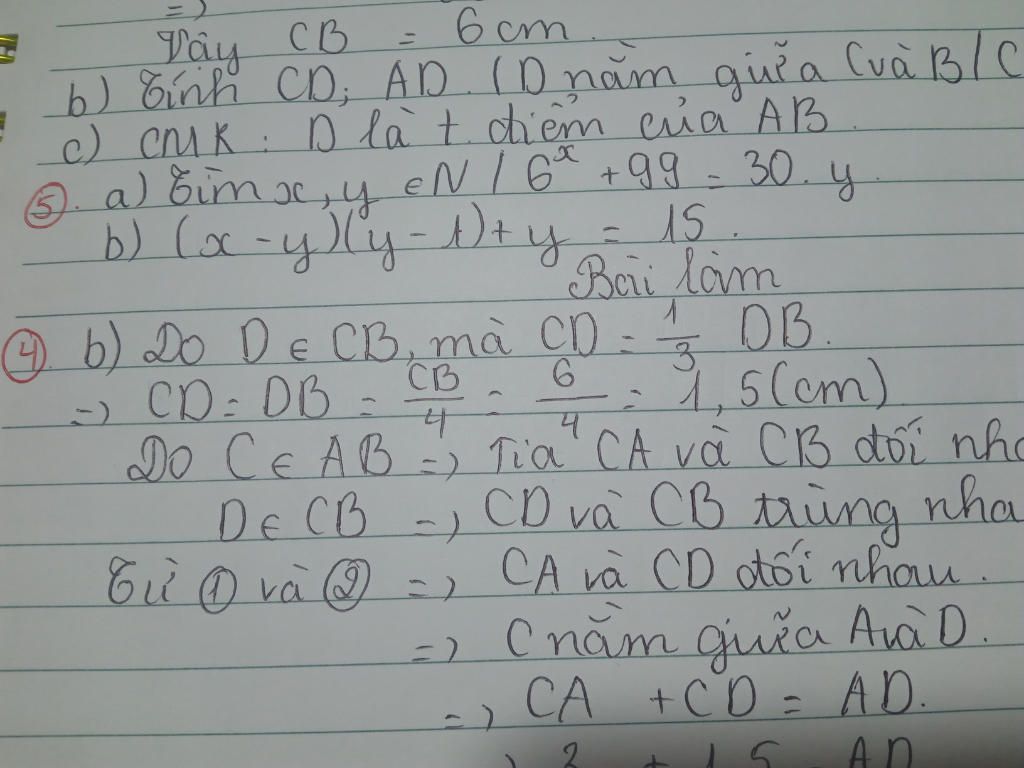 =>
Vậy CB = 6cm.
b) Tính CD; AD. (D nằm giữa C và B / C
c) CMR: D là t điểm của AB.
⑤. a) Tìm x, y ∈ N / 6^x + 99 = 30. y.
b) (x - y)(y - 1) + y = 15.
Bài làm
④ b) Do D ∈ CB, mà CD = 1/3 DB.
=> CD = DB = CB/4 = 6/4 = 1,5 (cm)
Do C ∈ AB => Tia CA và CB đối nha
D ∈ CB => CD và CB trùng nha
Từ ① và ② => CA và CD đối nhau.
=> C nằm giữa A và D.
=> CA + CD = AD.
3 + 1,5 = AD